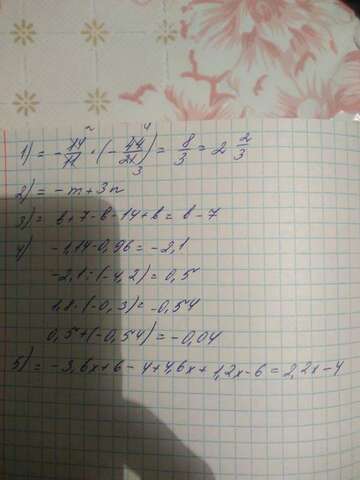 1) = - 14/11 · (- 44/21) = 8/3 = 2 2/3
2) = -m + 3n
3) = b + 7 - b - 14 + b = b - 7
4) -1,14 - 0,96 = -2,1
-2,1 : (-4,2) = 0,5
1,8 · (-0,3) = -0,54
0,5 + (-0,54) = -0,04
5) = -3,6x + 6 - 4 + 4,6x + 1,2x - 6 = 2,2x - 4